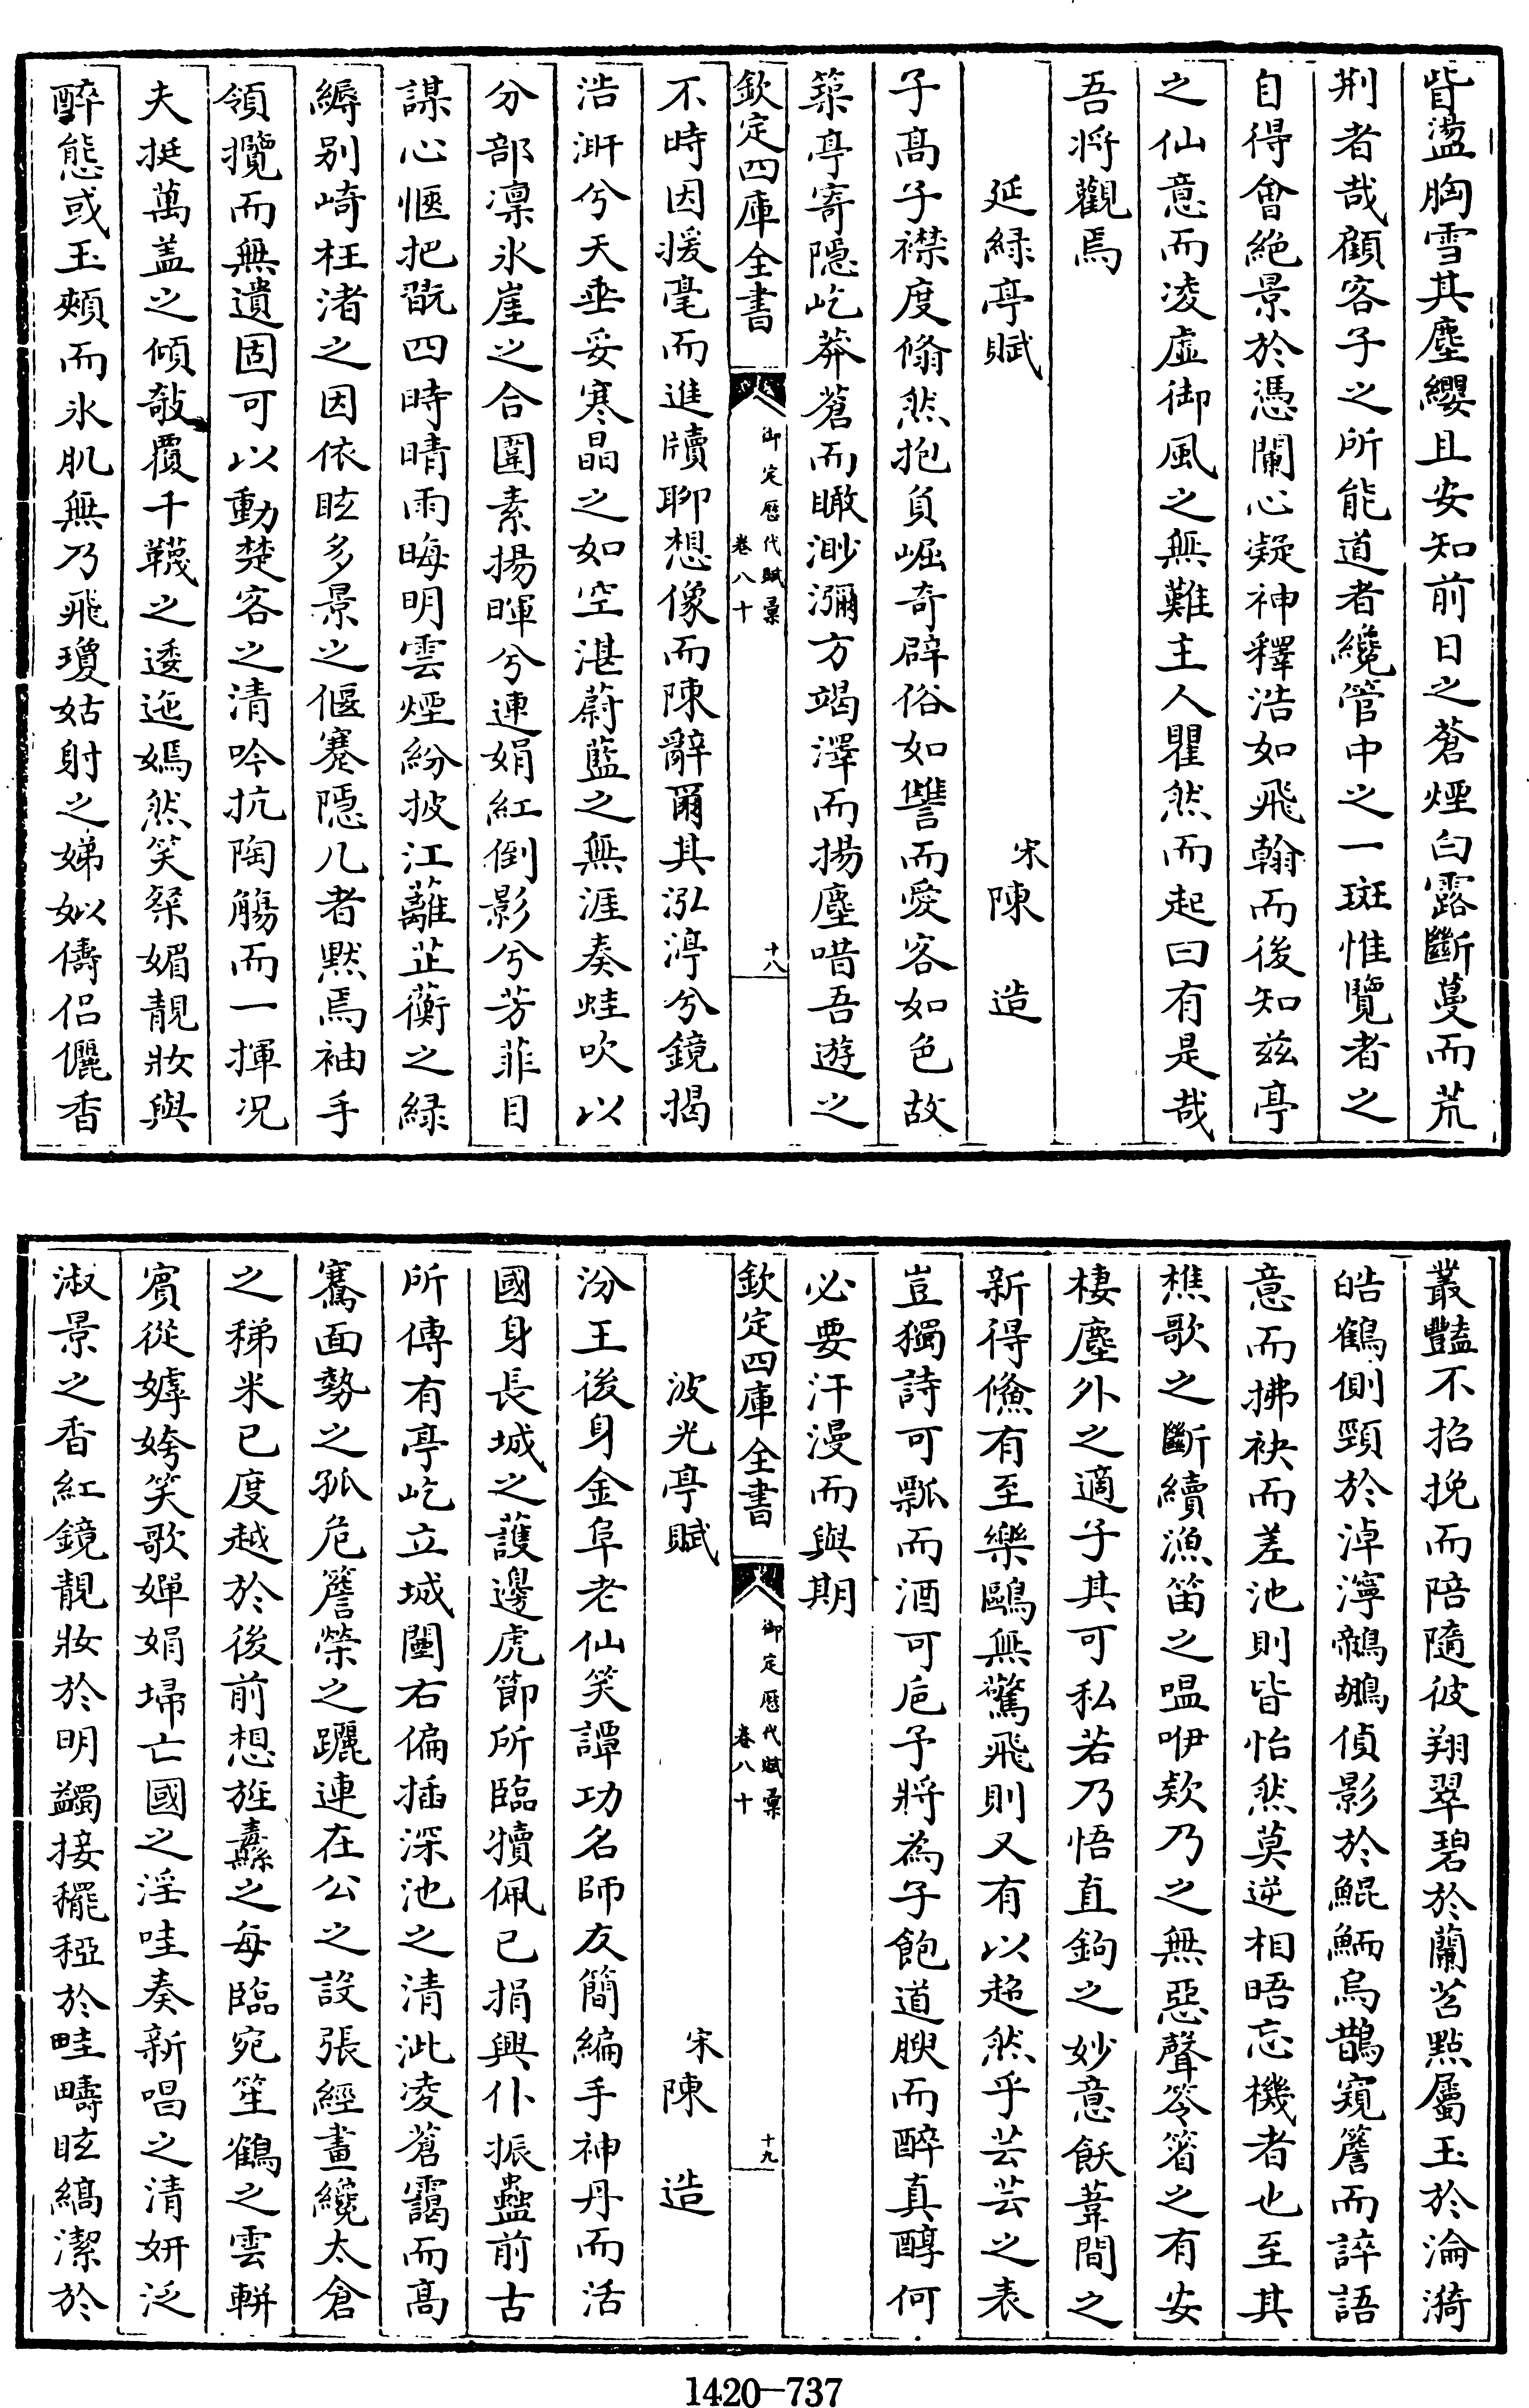 眥盪胸雪其塵纓且安知前日之蒼煙白露斷蔓而荒
荆者哉顧客子之所能道者纔管中之一斑惟覽者之
自得會絶景於憑闌心凝神釋浩如飛翰而後知兹亭
之仙意而凌虛御風之無難主人瞿然而起曰有是哉
吾將觀焉
延綠亭賦
宋陳造
子高子襟度翛然抱負崛奇辟俗如讐而愛客如色故
築亭寄隱屹莽蒼而瞰渺瀰方竭澤而揚塵唶吾遊之
欽定四庫全書
御定歷代賦彙
卷八十
十八
不時因援毫而進牘聊想像而陳辭爾其泓渟兮鏡揭
浩汧兮天垂妥寒晶之如空湛蔚藍之無涯奏蛙吹以
分部凛氷崖之合圍素揚暉兮連娟紅倒影兮芳菲目
謀心愜把翫四時晴雨晦明雲煙紛披江蘺芷蘅之緑
縟别崎枉渚之因依眩多景之偃蹇隱几者黙焉袖手
領攬而無遺固可以動楚客之清吟抗陶觴而一揮况
夫挺萬盖之傾欹覆千韈之逶迤嫣然笑粲媚靚妝與
醉態或玉頰而氷肌無乃飛瓊姑射之娣姒儔侣儷香
叢豔不招挽而陪隨彼翔翠碧於蘭苕點屬玉於淪漪
皓鶴側頸於淖濘鵜鶘偵影於鯤鮞烏鵲窺簷而誶語
意而拂袂而差池則皆怡然莫逆相晤忘機者也至其
樵歌之斷續漁笛之嗢咿欸乃之無惡聲笭箵之有安
棲塵外之適子其可私若乃悟直鉤之妙意飫葦間之
新得儵有至樂鷗無驚飛則又有以超然乎芸芸之表
豈獨詩可瓢而酒可巵予將為子飽道腴而醉真醇何
必要汗漫而與期
欽定四庫全書
御定歷代賦彙
卷八十
十九
波光亭賦
宋陳造
汾王後身金阜老仙笑譚功名師友簡編手神丹而活
國身長城之護邊虎節所臨犢佩已捐興仆振蠱前古
所傳有亭屹立城闉右偏插深池之清泚凌蒼靄而高
騫面勢之孤危簷榮之躧連在公之設張經畫纔太倉
之稊米已度越於後前想旌纛之每臨宛笙鶴之雲軿
賓從嫭姱笑歌嬋娟埽亡國之淫哇奏新唱之清妍泛
淑景之香紅鏡靚妝於明蠲接䆉稏於畦疇眩縞潔於
1420—737